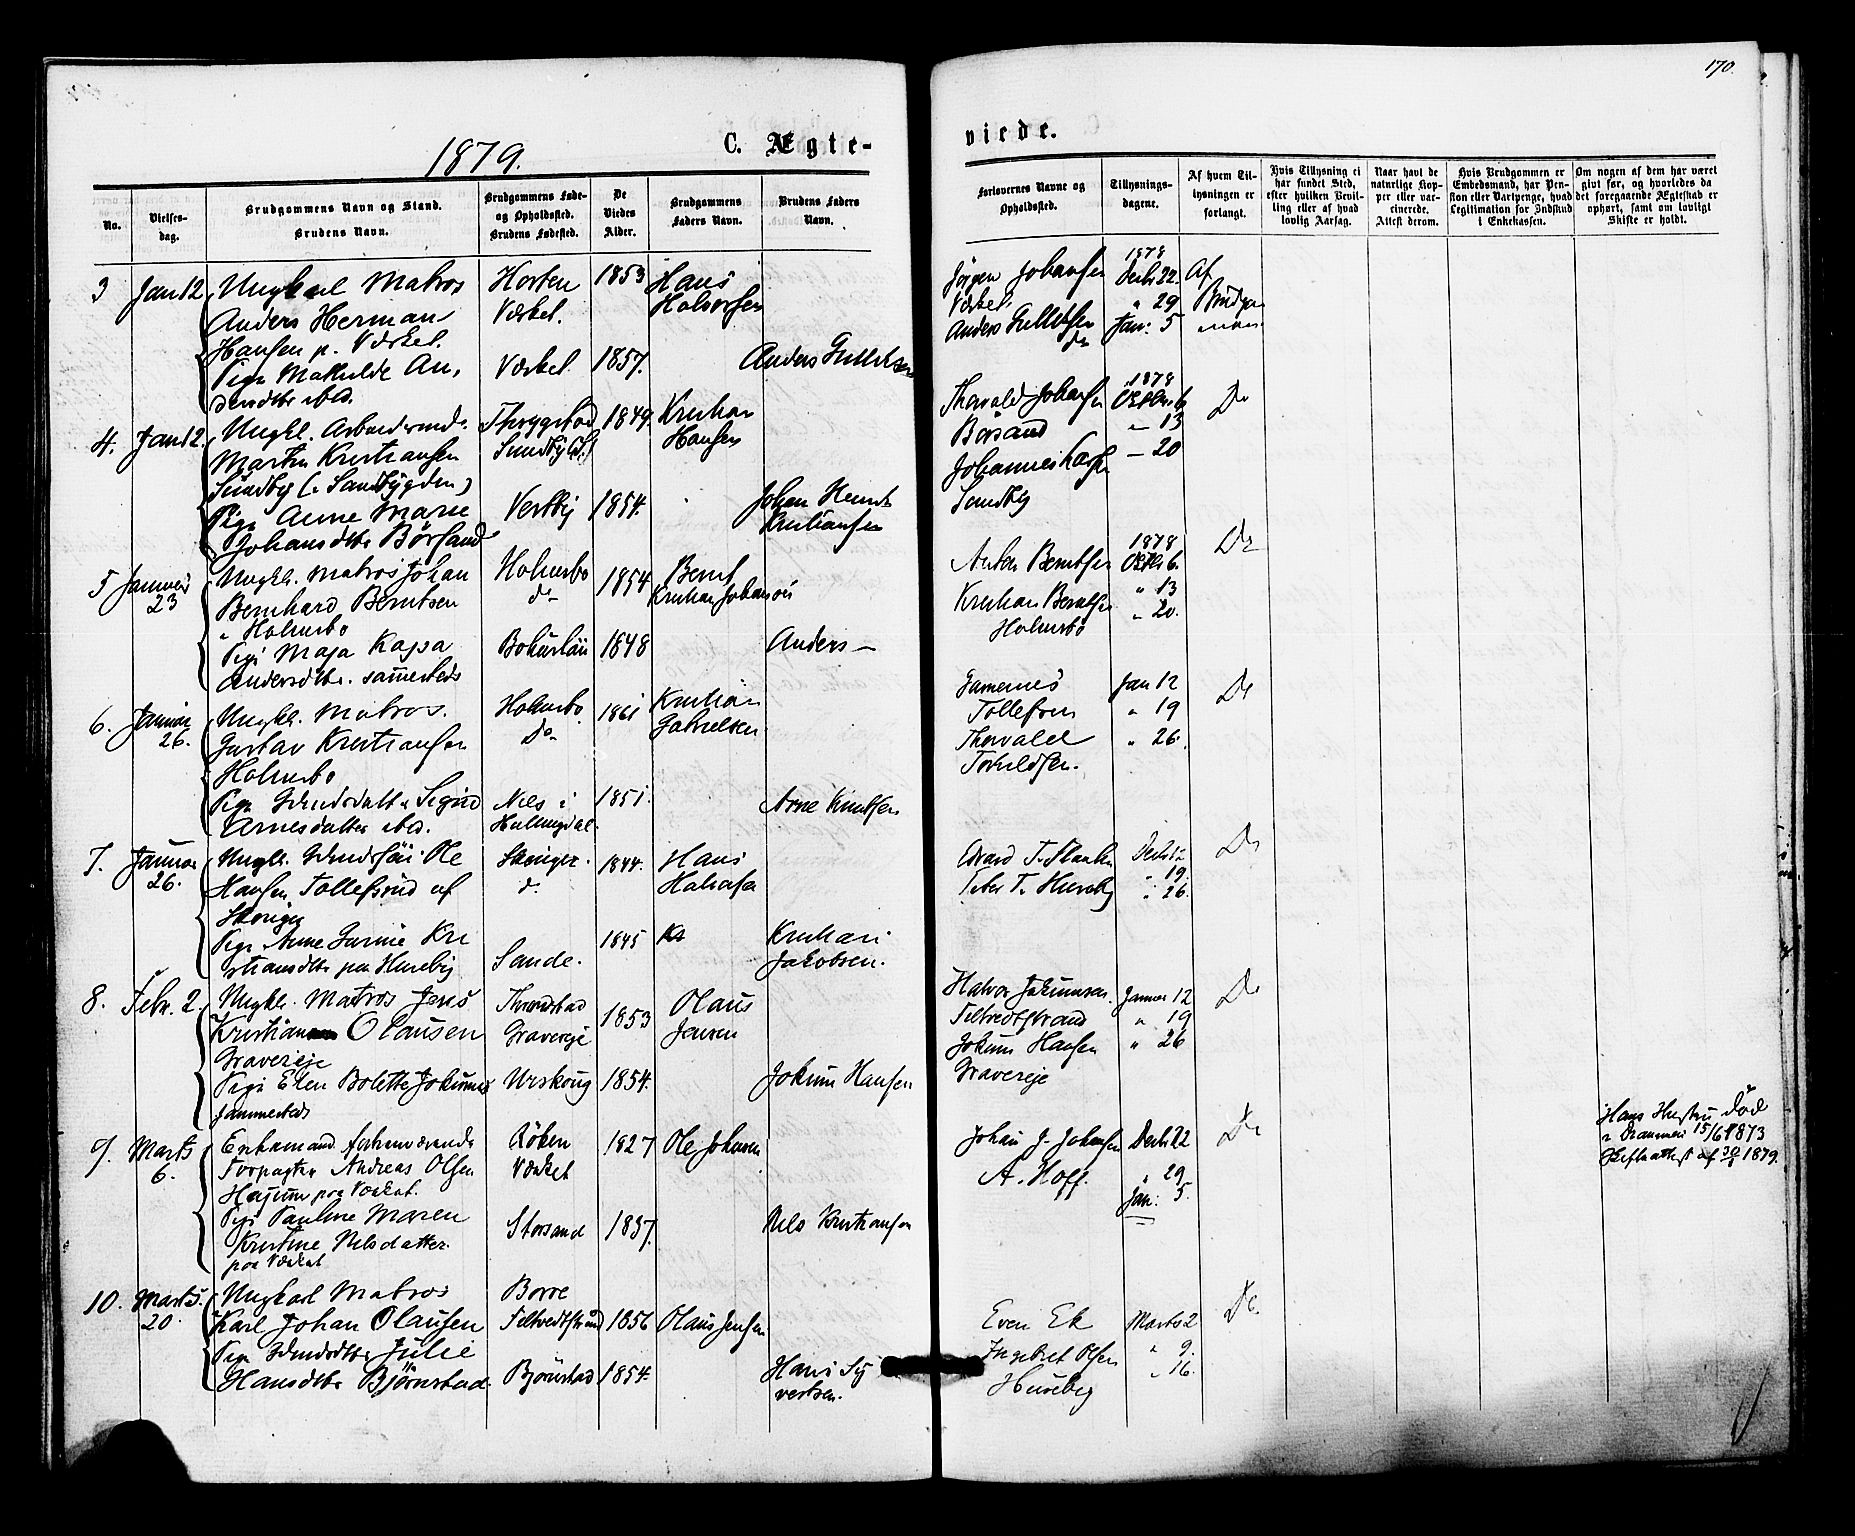 170.
1879.
C. Ægte-
viede.
No.
Vielses-
dag.
Brudgommens Navn og Stand.
Brudens Navn.
Brudgommens Føde-
og Opholdssted.
Brudens Fødested.
De
Viedes
Alder.
Brudgommens
Faders Navn.
Brudens Faders
Navn.
Forlovernes Navne og
Opholdssted.
Tillysnings-
dagene.
Af hvem Til-
lysningen er
forlangt.
Hvis Tillysning ei
har fundet Sted,
efter hvilken Bevil-
ling eller af hvad
lovlig Aarsag.
Naar havt de
naturlige Kop-
per eller vac-
cinerede.
Attest derom.
Hvis Brudgommen er
Embedsmand, har Pen-
sion eller Vartpenge, hvad
Legitimation for Indskud
i Enkekassen.
Om nogen af dem har været
givt før, og hvorledes da
det foregaaende Ægteskab er
ophørt, samt om lovligt
Skifte er holdt.
3 Jan 12 Ungkarl Matros Horten 1853 Hans
Anders Herman Værket. Halvorsen
Hansen p. Værket.
Pige Mathilde An, Værket 1857. Anders Gulliksen
dersdtr ibd.
Jørgen Johansen 1878 Decbr 22. Af
Værket. " 29 Brudgom
Anders Gulliksen Jan: 5 men
do
4. Jan 12. Ungkl. Arbeidsmd. 1849. Kristian
Martin Kristiansen Sundby Hansen
Sundby
Pige Anne Marie Vestby 1854. Johan
Johansdtr Børsand Kristiansen
Thorvald Johansen 1878 6 Do
Børsand " 13
Johannes – 20
Sundby
5 Januar Ungkl. Matros Johan Holmsbo 1854 Bernt
23 Bernhard Berntsen do Kristian Johansen
Holmsbo
Pige Maja Kajsa Bohuslän 1848 Anders –
Andersdtr. sammesteds
Anton Berntsen 1878 6. Do
Kristian Berntsen " 13
Holmsbo " 20.
6. Januar Ungkl. Matros. Holmsbo 1861 Kristian
26. Gustav Kristiansen do Gabrielsen
Holmsbo
Pige Sigrid Næs i 1851. Arne Knutsen
Arnesdatter ibd. Hallingdal.
Tollefsen Jan 12 Do
" 19
Thorvald " 26.
Torkildsen.
7. Januar Ungkl. Ole Skoger. 1844. Hans
26. Hansen Tollefsrud af do
Skoger
Pige Anne Gurine Kri Sande. 1845 Kristian
stiansdtr paa Huseby Jakobsen.
Edvard T. 12 Do
Peter T. Huseby " 19
" 26.
8. Febr. 2. Ungkl. Matros Jens 1853 Olaus
Kristian Olausen Gravereje Jensen
Gravereje
Pige Elen Bolette Jokums Urskoug 1854. Jokum Hansen
sammesteds
Halvor Januar 12 Do
Filtvedtstrand " 19
Jokum Hansen " 26
Gravereje
9. Marts Enkemand forhenværende Røken 1827 Ole Johnsen
6. Forpagter Andreas Olsen Værket
paa Værket.
Pige Pauline Maren Storsand 1837. Nils Kristiansen
Kristine Nilsdatter
paa Værket
Johan J. Johansen Decbr 22 Do
A. Hoff. " 29
Jan: 5.
Hans Hustru død
i Drammen 15/6 1873
Skifteattest af 1879.
10. Marts. Ungkarl Matros Borre
20. Karl Johan Olausen Filtvedtstrand 1856 Olaus Jensen
Pige Julie
Hansdtr Bjørnstad. Bjørnstad 1854. Hans Sy
vertsen.
Even Ek Marts 2 Do
Ingebret Olsen " 9.
Huseby " 16.